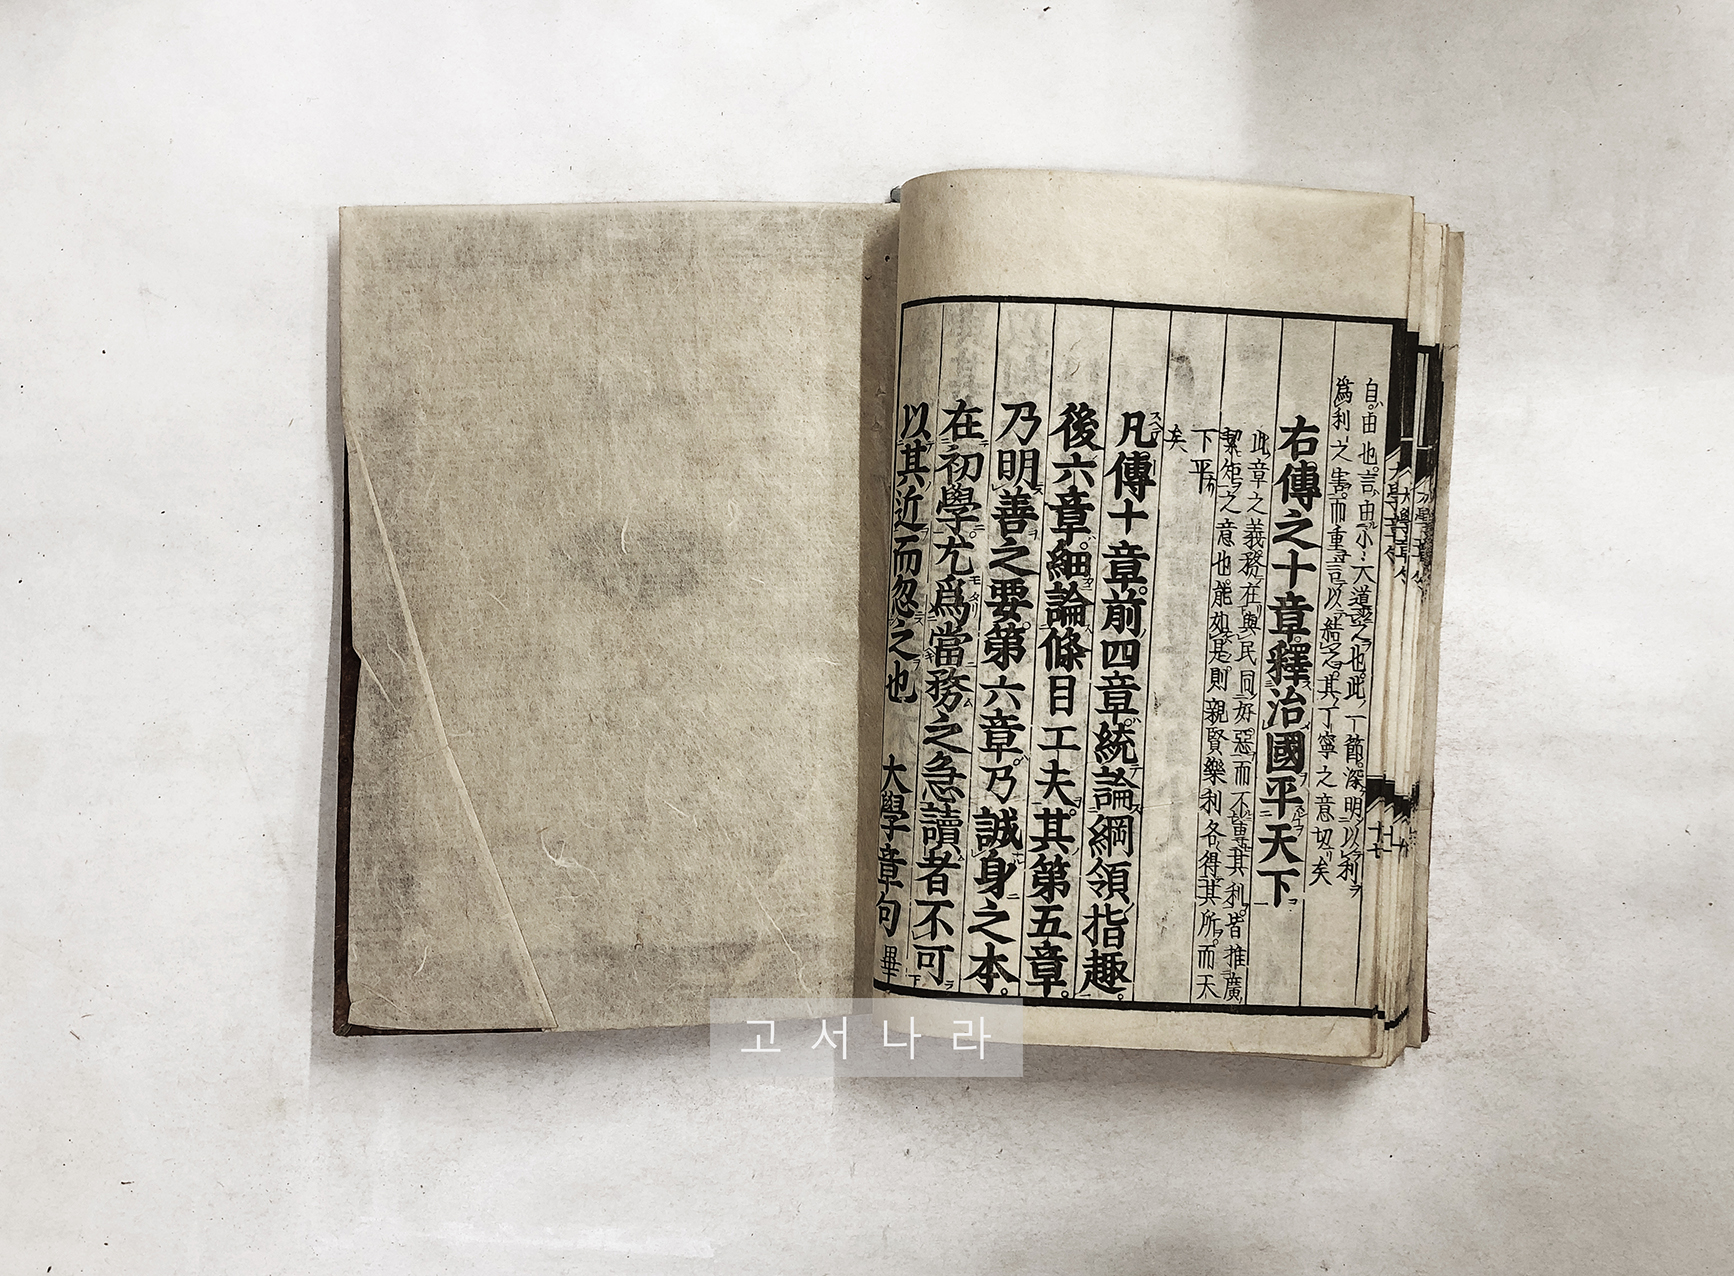 自由也言由小人道之也此一節深明以利
爲利之害而重言以結之其丁寧之意切矣
右傳之十章釋治國平天下
此章之義務在與民同好惡而不專其利皆推廣
絜矩之意也能如是則親賢樂利各得其所而天
下平
矣
凡傳十章前四章統論綱領指趣
後六章細論條目工夫其第五章
乃明善之要第六章乃誠身之本
在初學尤爲當務之急讀者不可
以其近而忽之也 大學章句 畢
고서나라